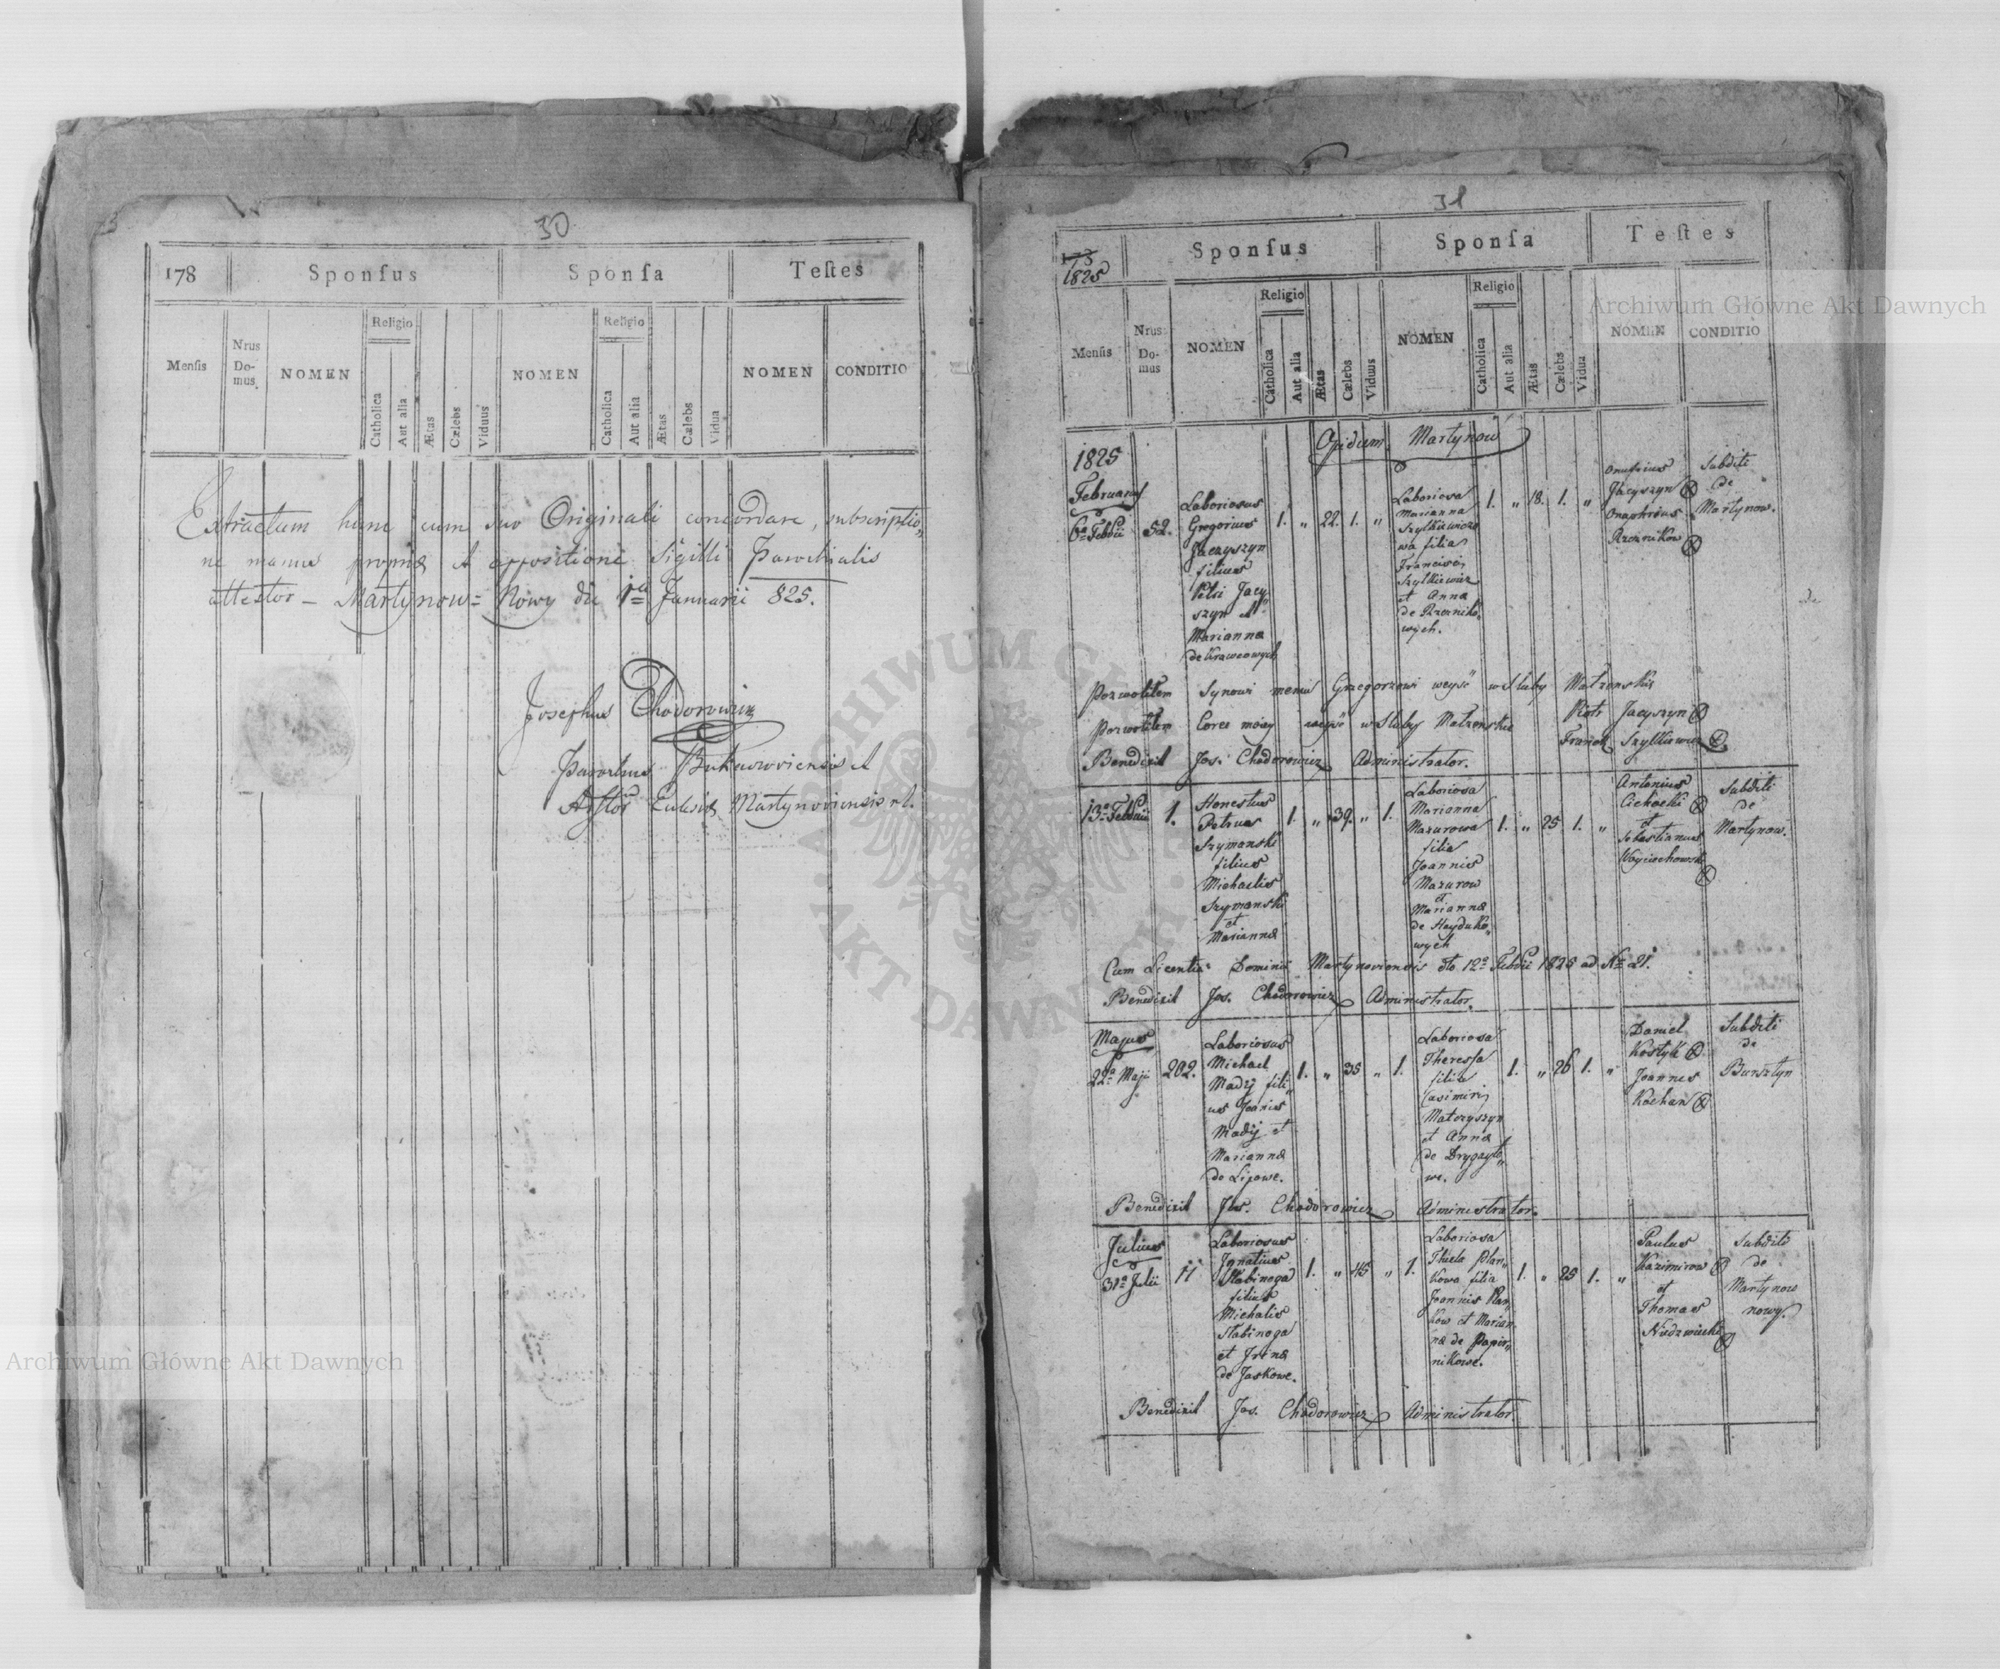 30
178
Sponſus
Sponſa
Teſtes
Menſis
Nrus Do- mus
NOMEN
Religio
Catholica
Aut alia
Ætas
Cælebs
Viduus
NOMEN
Religio
Catholica
Aut alia
Ætas
Cælebs
Vidua
NOMEN
CONDITIO
Extractum hunc cum suo Originali concordare, subscriptio„
ne manus propriæ et appositione Sigilli Parochialis
attestor – Martynow= Nowy die 1ma Januarii 825.
Josephus Chodorowicz
Parochus Bukaczoviensis et
Ecclesiæ Martynoviensis r. l.
31
178
1825
Sponſus
Sponſa
Teſtes
Menſis
Nrus Do- mus
NOMEN
Religio
Catholica
Aut alia
Ætas
Cælebs
Viduus
NOMEN
Religio
Catholica
Aut alia
Ætas
Cælebs
Vidua
NOMEN
CONDITIO
Opidum Martynow
1825
Februarius
6ta Febrii
52.
Laboriosus
Gregorius
Jaczyszyn
filius
Petri Jacy„
szyn et
Marianna
de Krawcowych
1. „ 22. 1. „
Laboriosa
Marianna
Szylkiewiczo
wa filia
Francisci
Szylkiewicz
et Anna
de Rzezniko„
wych.
1. „ 18. 1. „
Onufrius
Jacyszyn
Onuphrius
Rzeznikow
Subditi
de
Martynow.
Pozwolilem Synowi memu Grzegorzowi weysć w Sluby Malzenskie
Piotr Jacyszyn
Pozwolilem Corce moiey weysć w Sluby Malzenskie
Szylkiewicz
Benedixit Jos. Chodorowicz Administrator.
13a Febrii
1.
Honestus
Petrus
Szymanski
filius
Michaelis
Szymanski
et
Marianna
1. „ 39. „ 1.
Laboriosa
Marianna
Mazurowa
filia
Joannis
Mazurow
et
Marianna
de Hayduko„
wych
1. „ 25 1. „
Antonius
Cichocki
et
Sebastianus
Woyciechowski
Subditi
de
Martynow.
Cum Licentia Dominii Martynoviensis dto 12a Febrii 1825 ad No 21.
Benedixit Jos. Chodorowicz Administrator.
Majus
22a Maji
202.
Laboriosus
Michael
Madij fili„
us Joanis
Madij et
Marianna
de Lipowe.
1. „ 35 „ 1.
Laboriosa
Theressa
filia
Casimiri
Matczyszyn
et Anna
1. „ 26 1. „
Daniel
Kostyk
Joannes
Kochan
Subditi
de
Bursztyn
Benedixit Jos. Chodorowicz Administrator.
Julius
31a Julii
11
Laboriosus
Ignatius
Stabinoga
filius
Michalis
Stabinoga
et Irina
de Jaskowe.
1. „ 45 „ 1.
Laboriosa
Thecla Plan„
kowa filia
Joannis Plan„
kow et Marian„
na de Papir„
nikowe.
1. „ 25 1. „
Paulus
Kazimirow
et
Thomas
Niedzwiecki
Subditi
de
Martynow
nowy.
Benedixit Jos. Chodorowicz Administrator.
Archiwum Główne Akt Dawnych
Archiwum Główne Akt Dawnych